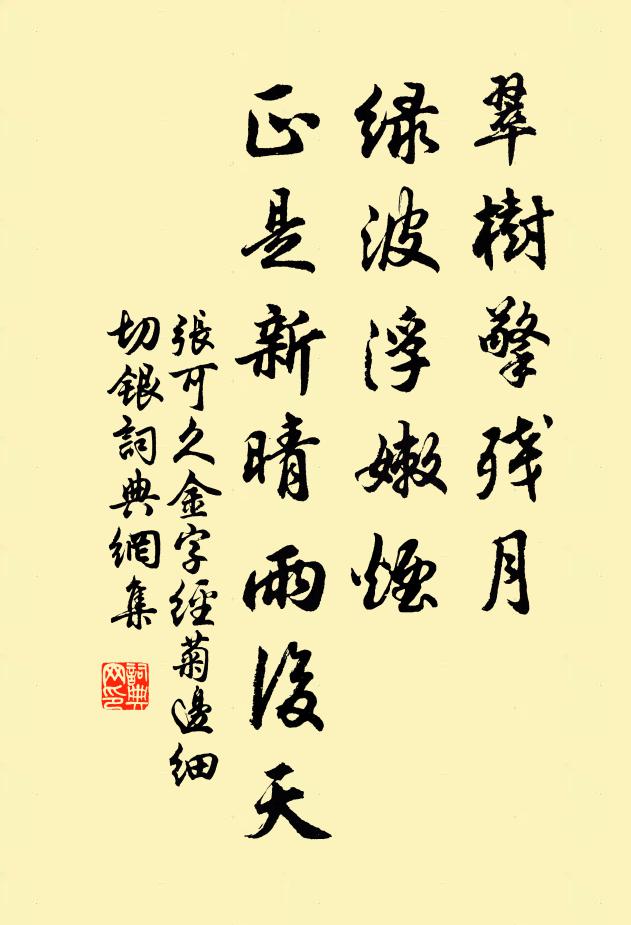 翠樹擎残月
緑波浮嫩煙
正是新晴雨後天
張可久金字經菊邊細
切銀詞典網集
詞典
网印